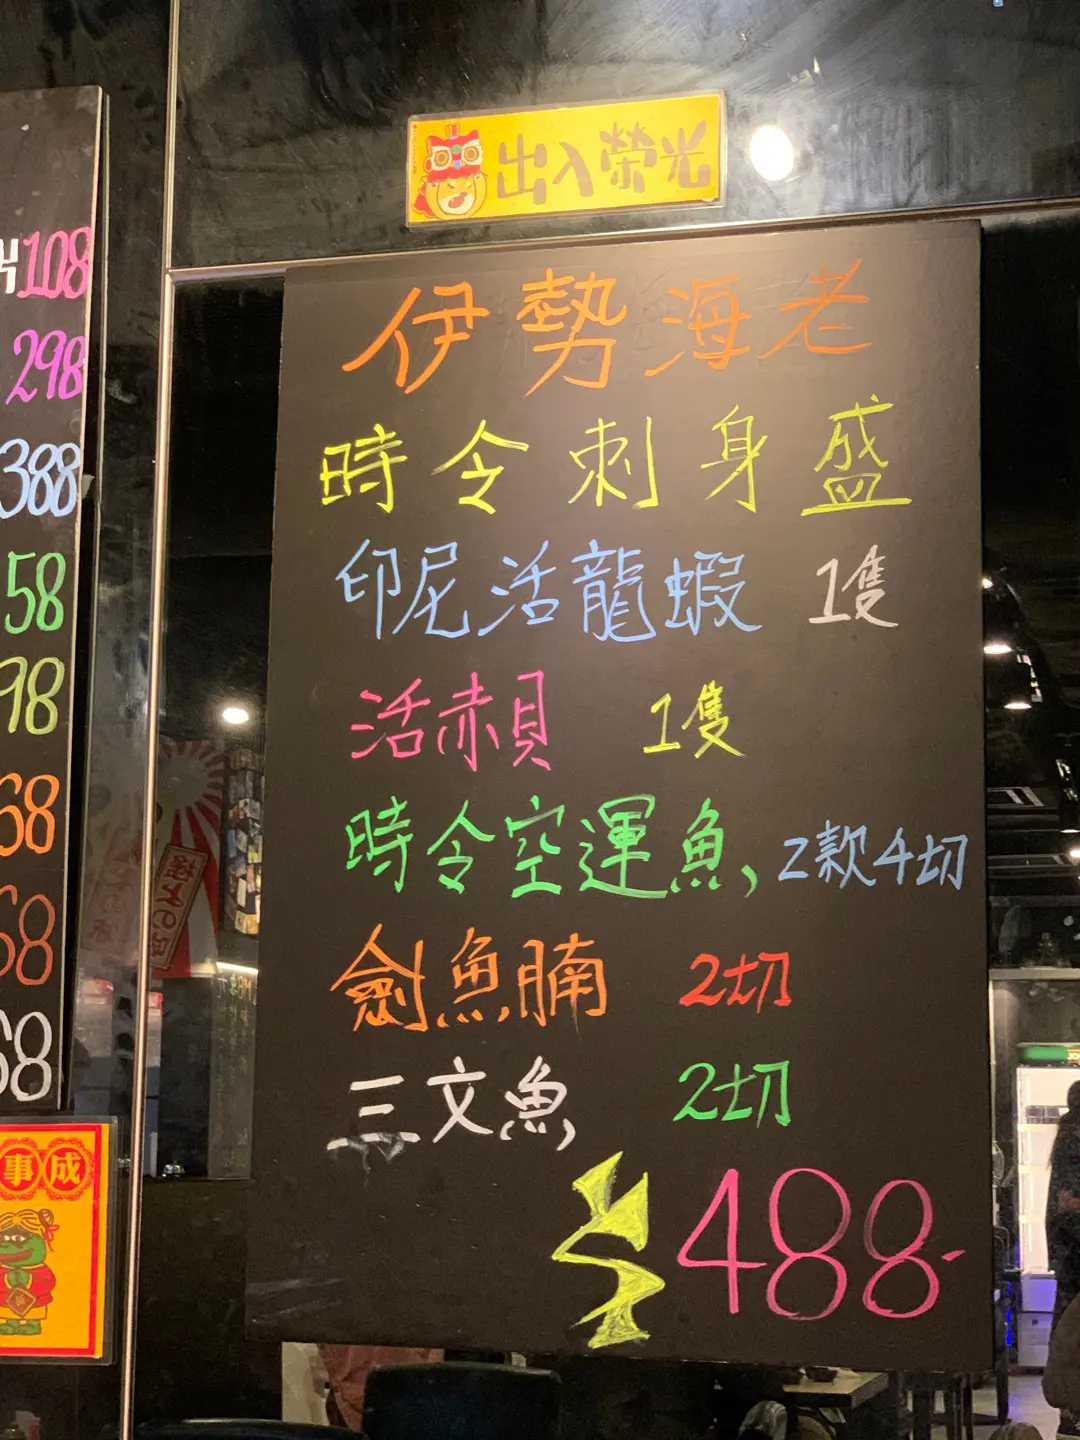 出入榮光
108
298
388
58
98
68
68
68
事成
伊勢海老
時令刺身盛
印尼活龍蝦 1隻
活赤貝 1隻
時令空運魚, 2款4切
劍魚腩 2切
三文魚 2切
$488-